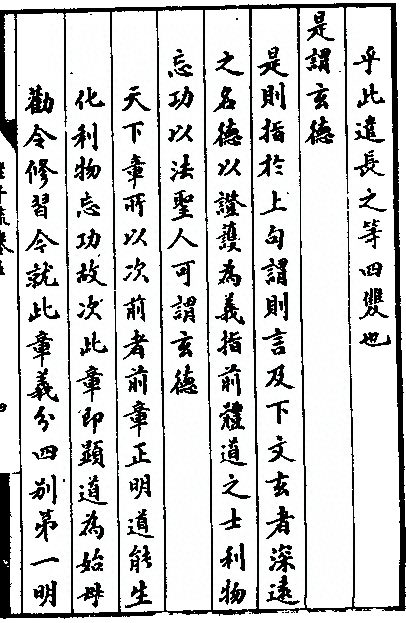 乎此遣長之等四雙也
是謂玄德
是則指於上句謂則言及下文玄者深遠
之名德以證護為義指前體道之士利物
忘功以法聖人可謂玄德
天下章所以次前者前章正明道能生
化利物忘功故次此章即顯道為始母
勸令修習令就此章義分四別第一明